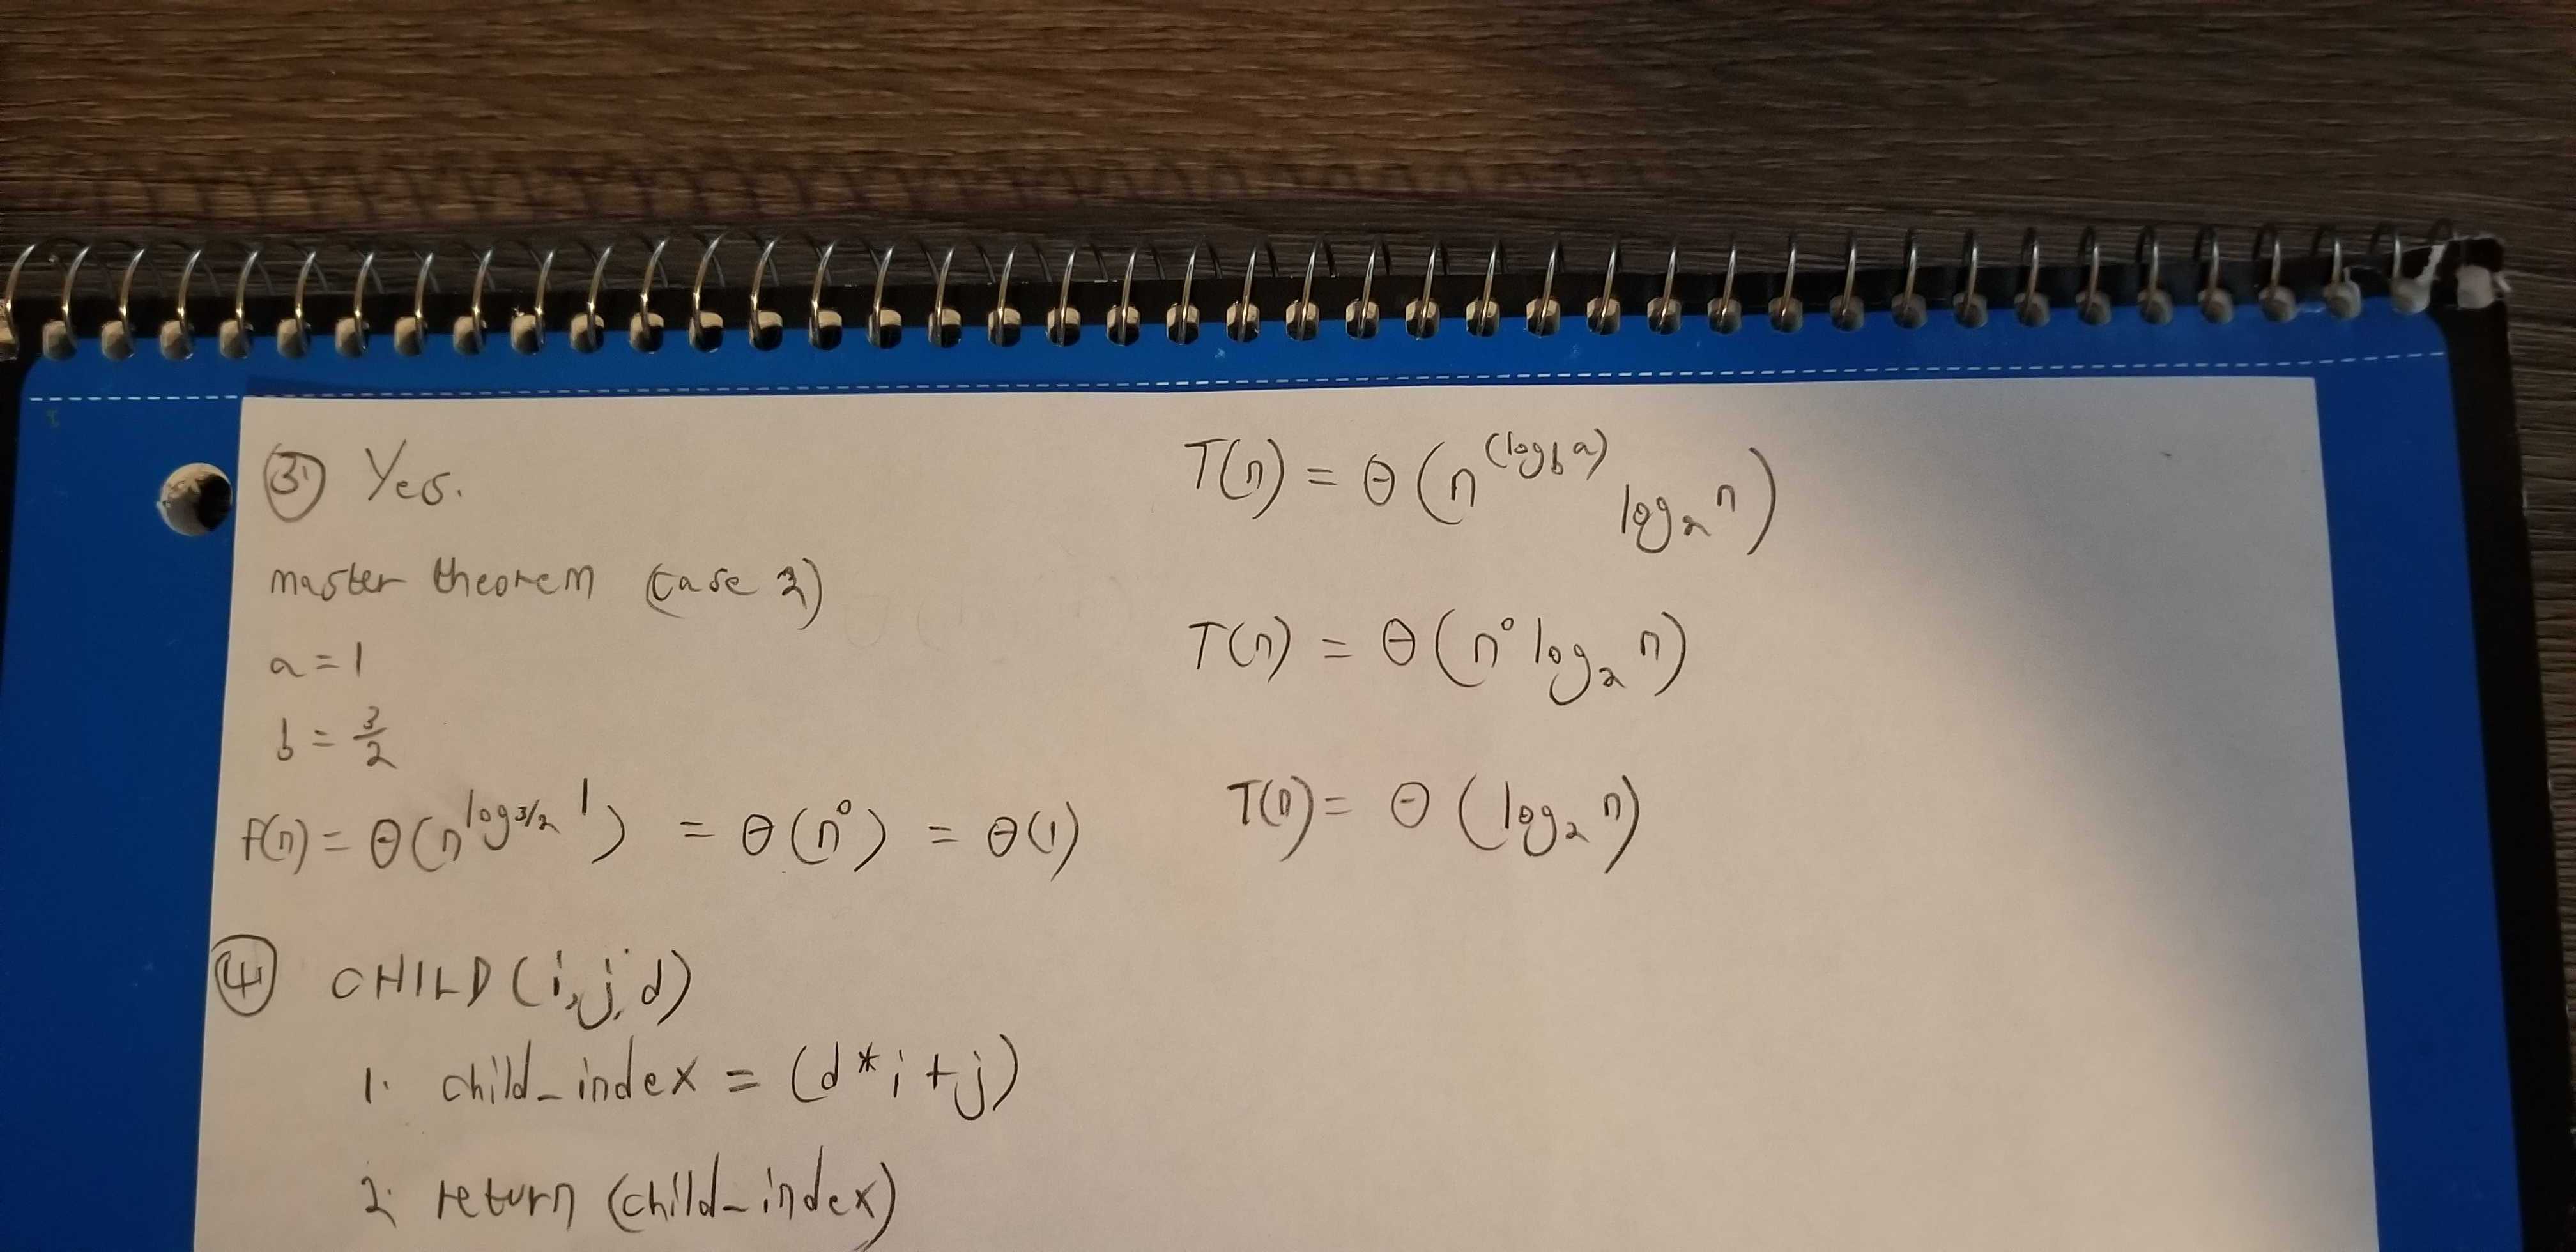 ③ Yes.
master theorem (case 2)
a = 1
b = 3/2
f(n) = Θ(n^log3/2 1) = Θ(n^0) = Θ(1)
T(n) = Θ(n^(log_b a) log_2 n)
T(n) = Θ(n^0 log_2 n)
T(n) = Θ(log_2 n)
④ CHILD(i,j,d)
1. child_index = (d*i+j)
2. return (child_index)